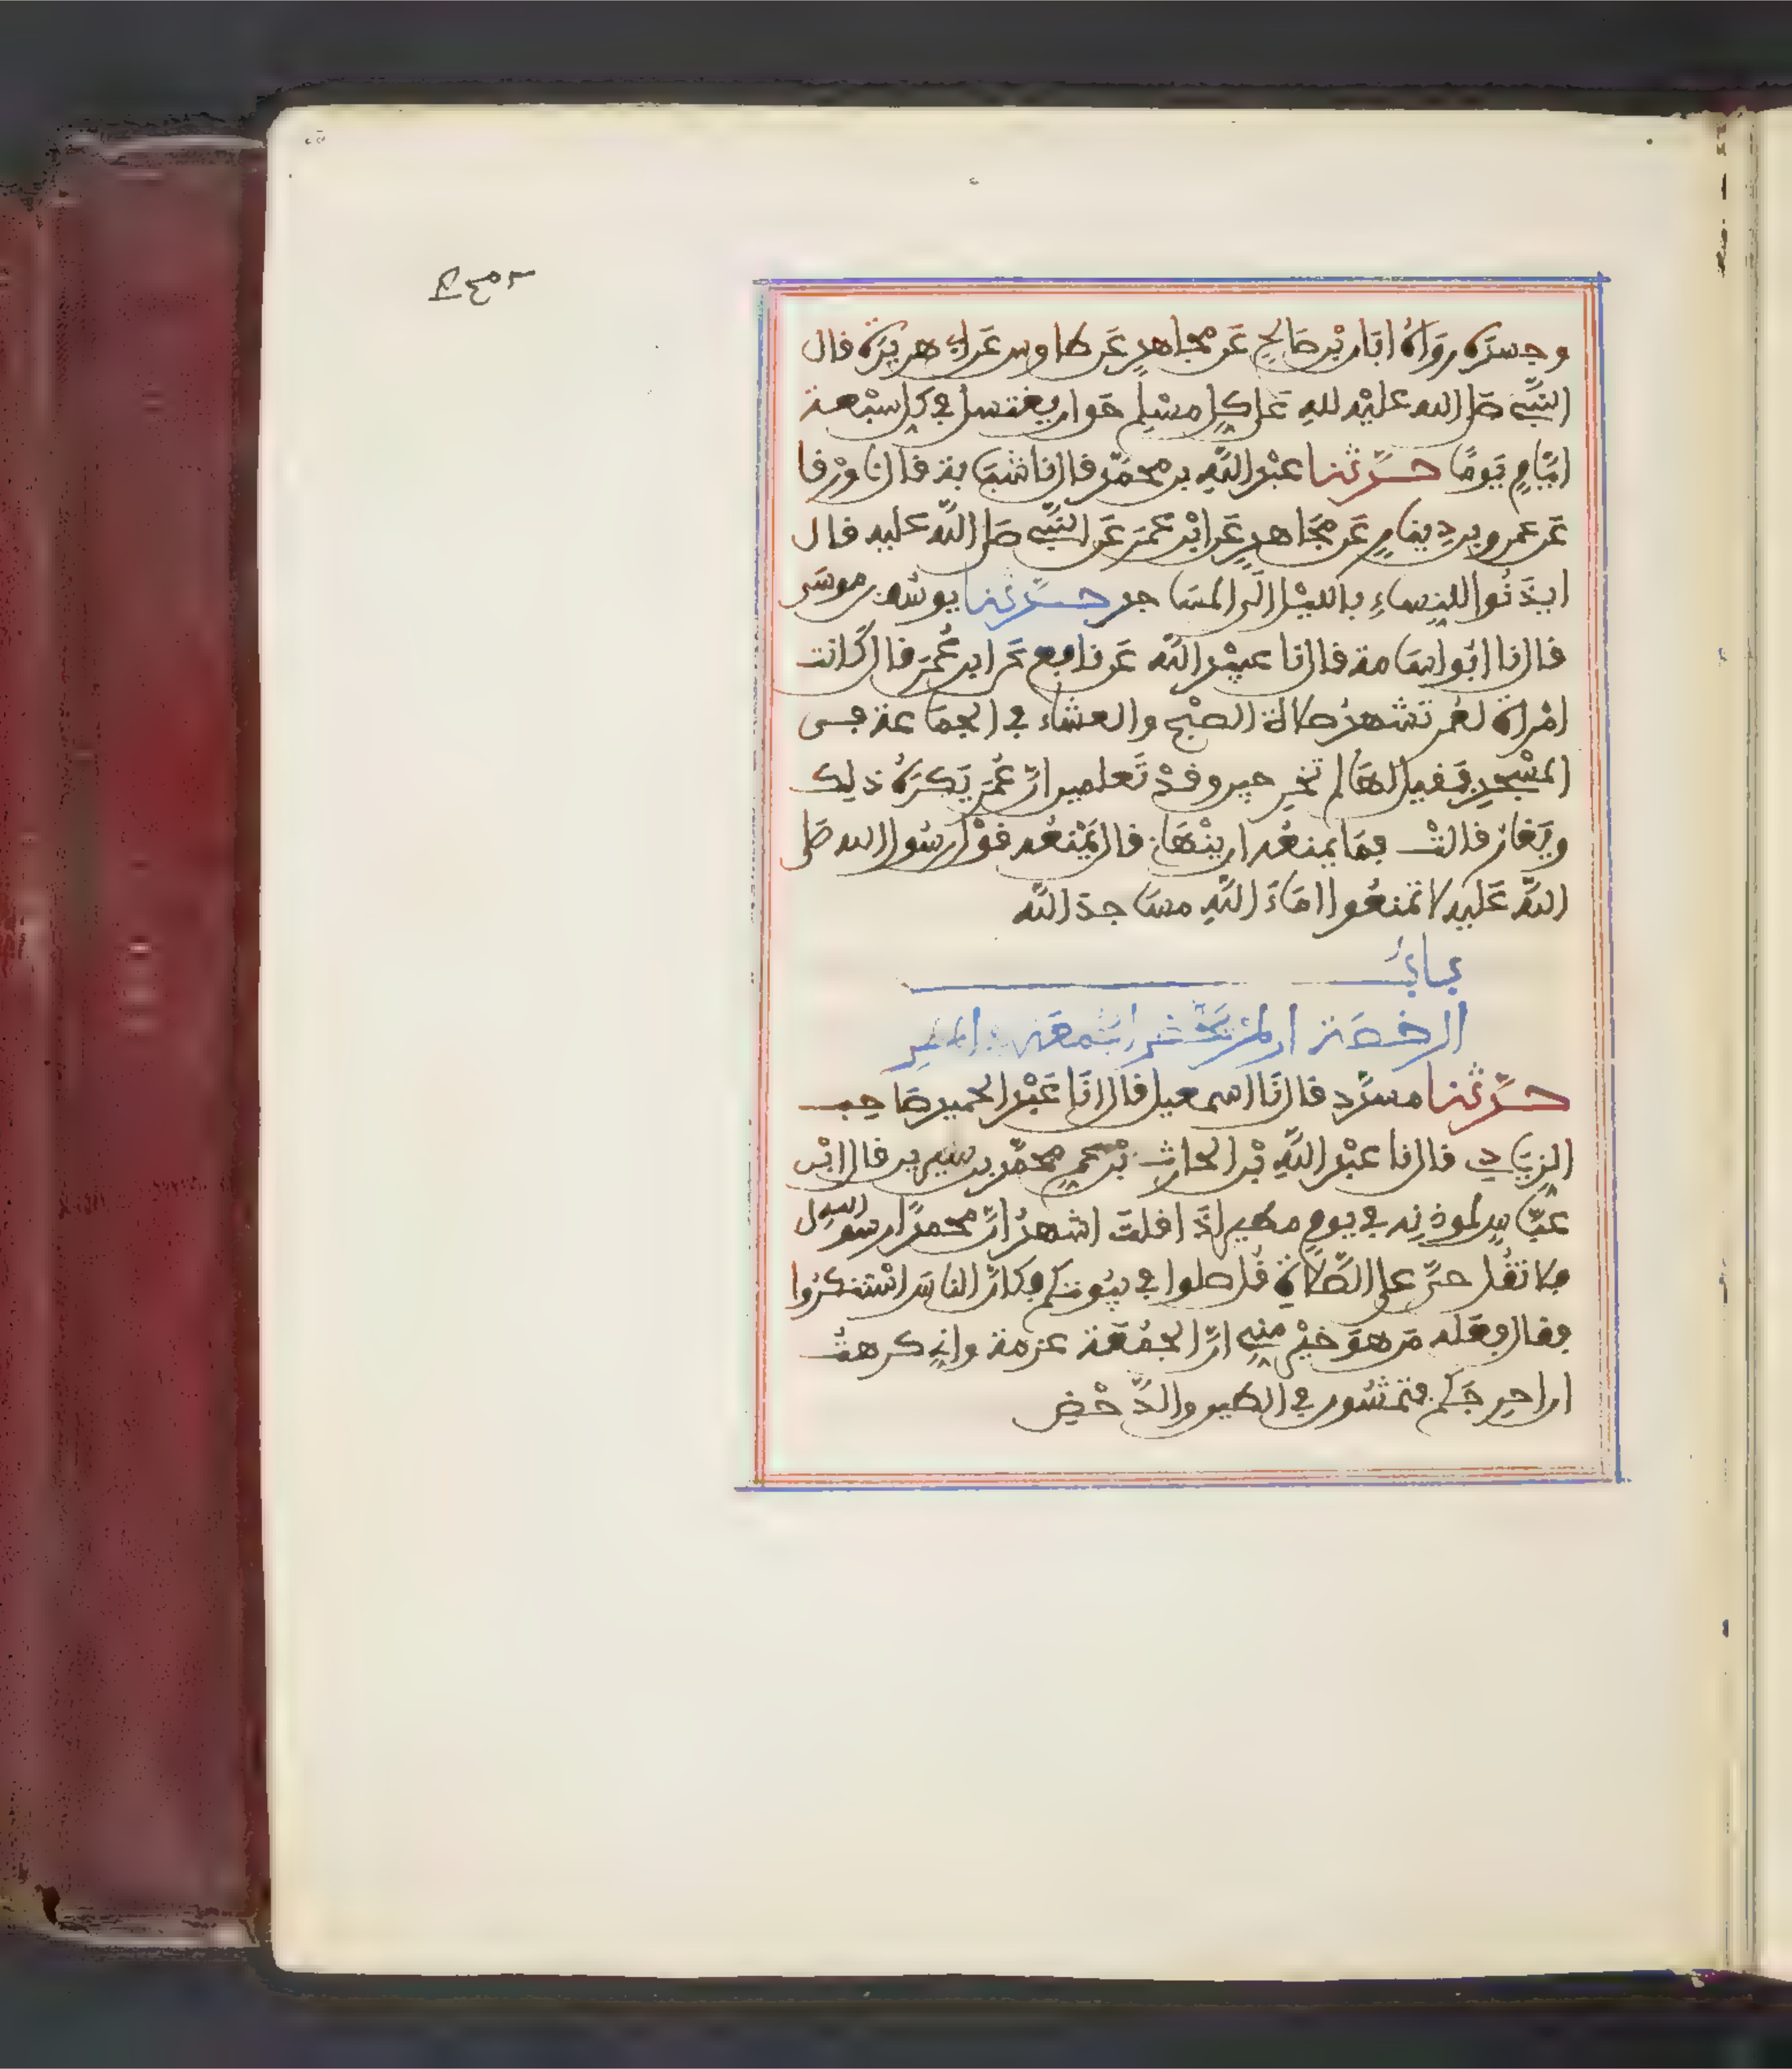 وجسده رواه ابان بن صالح عن مجاهد عن طاوس عن ابي هريرة قال
النبي صلى الله عليه لله على كل مسلم حق ان يغتسل في كل سبعة
ايام يوما حدثنا عبد الله بن محمد قال نا شبابة قال نا ورقا
عن عمرو بن دينار عن مجاهد عن ابن عمر عن النبي صلى الله عليه قال
ايذنوا للنساء بالليل الى المساجد حدثنا يوسف بن موسى
قال نا ابو اسامة قال نا عبيد الله عن نافع عن ابن عمر قال كانت
امراة لعمر تشهد صلاة الصبح والعشاء في الجماعة في
المسجد فقيل لها لم تخرجين وقد تعلمين ان عمر يكره ذلك
ويغار قالت فما يمنعه ان ينهاني قال يمنعه قول رسول الله صلى
الله عليه لا تمنعوا اماء الله مساجد الله
باب
الرخصة ان لم يحضر الجمعة في المطر
حدثنا مسدد قال نا اسمعيل قال انا عبد الحميد صاحب
الزيادي قال نا عبد الله بن الحارث بن عم محمد بن سيرين قال ابن
عباس لموذنه في يوم مطير اذا قلت اشهد ان محمدا رسول الله
فلا تقل حي على الصلاة قل صلوا في بيوتكم فكان الناس استنكروا
فقال فعله من هو خير مني ان الجمعة عزمة واني كرهت
ان احرجكم فتمشون في الطين والدحض